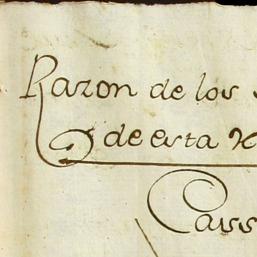 Razon de los
de esta